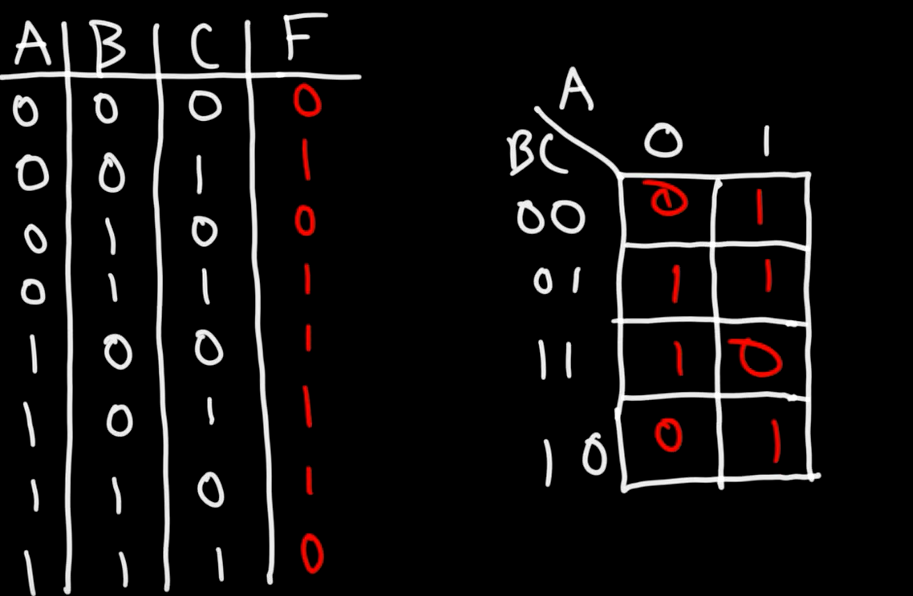 A B C F
0 0 0 0
0 0 1 1
0 1 0 0
0 1 1 1
1 0 0 1
1 0 1 1
1 1 0 1
1 1 1 0
A
BC 0 1
00 0 1
01 1 1
11 1 0
10 0 1